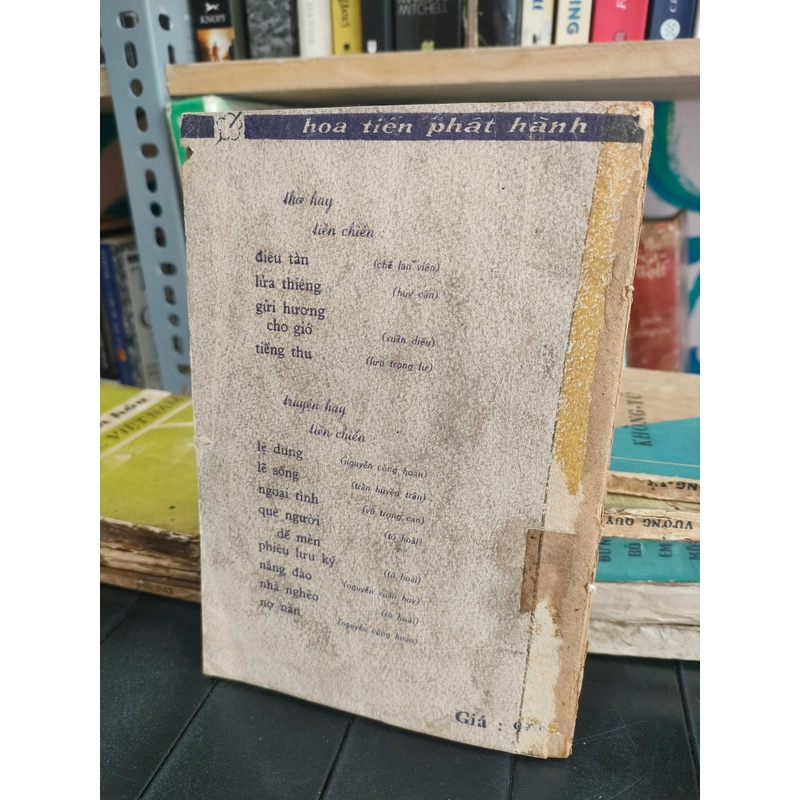 KNOPF
MITCHELL
hoa tiến phát hành
thơ hay
tiền chiến :
điêu tàn (chế lan viên)
lửa thiêng (huy cận)
gửi hương
cho gió (xuân diệu)
tiếng thu (lưu trọng lư)
truyện hay
tiền chiến
lệ dung (nguyễn công hoan)
lẽ sống (trần huyền trân)
ngoại tình (vũ trọng can)
quê người (tô hoài)
dế mèn
phiêu lưu ký (tô hoài)
nắng đào (nguyễn xuân huy)
nhà nghèo (tô hoài)
nợ nần (nguyễn công hoan)
Giá :
VIETNAM
KHÔNG-TỬ
VƯƠNG QUY